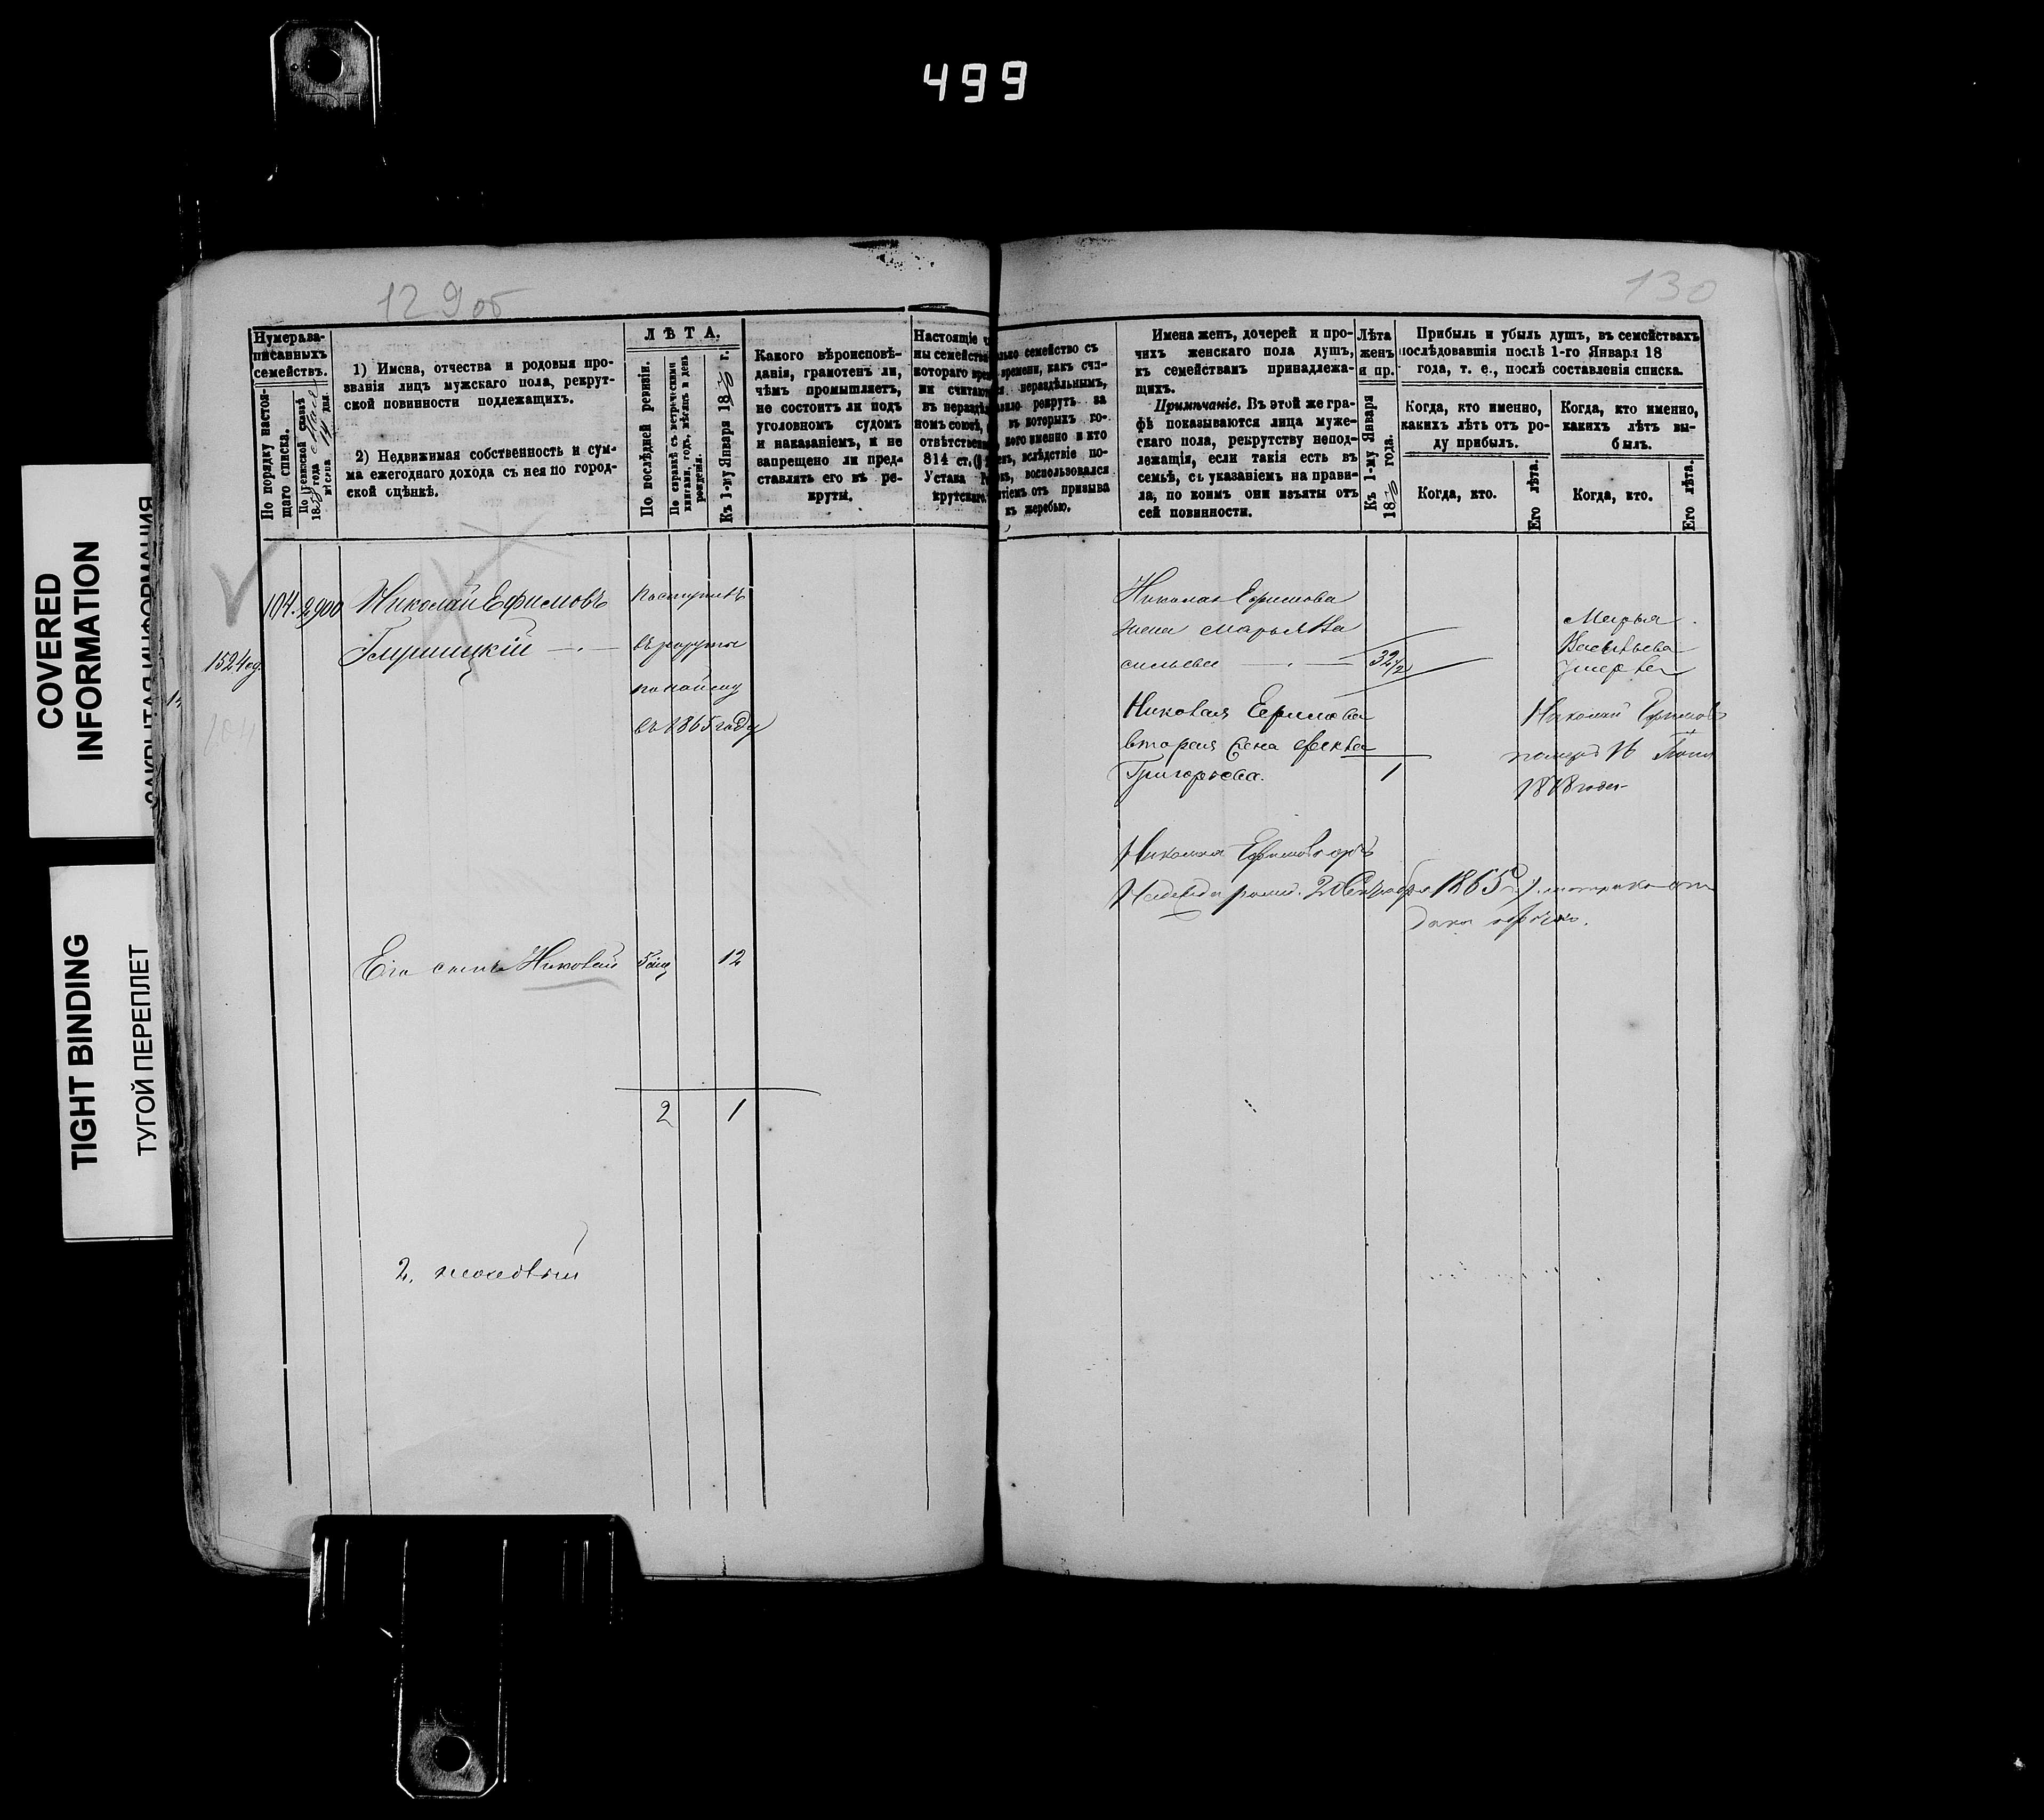 499
COVERED
INFORMATION
ЗАКРЫТАЯ ИНФОРМАЦИЯ
TIGHT BINDING
ТУГОЙ ПЕРЕПЛЕТ
129 об
130
Нумерава-
писанныхъ
семействъ.
По порядку настоя-
щаго списка.
1) Имена, отчества и родовыя про-
званія лицъ мужскаго пола, рекрут-
ской повинности подлежащихъ.
2) Недвижимая собственность и сум-
ма ежегоднаго дохода съ нея по город-
ской оцѣнкѣ.
ЛѢТА.
По послѣдней ревизіи.
По справкѣ съ метрическими
книгами, годъ, мѣсяцъ и день
рожденія.
Къ 1-му Января 1870 г.
Какого вѣроисповѣ-
данія, грамотенъ ли,
чѣмъ промышляетъ,
не состоитъ ли подъ
уголовномъ судомъ
и наказаніемъ, и не
запрещено ли пред-
ставлять его въ ре-
круты.
Настоящіе
ны семейства
котораго
ни считаю
въ нераздѣ
номъ союзѣ,
отвѣтствен
814 ст.
Устава
крутскаго.
семейство съ
времени, какъ счи-
нераздѣльнымъ,
рекрутъ за
въ которыхъ го-
кого именно и кто
вслѣдствіе по-
воспользовался
отъ призыва
къ жеребью.
Имена женъ, дочерей и про-
чихъ женскаго пола душъ,
къ семействамъ принадлежа-
щихъ.
Примѣчаніе. Въ этой же гра-
фѣ показываются лица муже-
скаго пола, рекрутству непод-
лежащія, если такія есть въ
семьѣ, съ указаніемъ на прави-
ла, по коимъ они изъяты отъ
сей повинности.
Лѣта
женъ
и пр.
Къ 1-му Января
1870 года.
Прибыль и убыль душъ, въ семействахъ
послѣдовавшія послѣ 1-го Января 18
года, т. е., послѣ составленія списка.
Когда, кто именно,
какихъ лѣтъ отъ ро-
ду прибылъ.
Когда, кто.
Его лѣта.
Когда, кто именно,
какихъ лѣтъ вы-
былъ.
Когда, кто.
Его лѣта.
104. 2900 Николай Ефимовъ
поступилъ
въ рекруты
по найму
въ 1865 году
1524
104
Николая Ефимова
жена Марья Ва
сильева 32
Марья
Васильева
умерла
Николая Ефимова
вторая жена Фекла
Григорьева. 1
Николай Ефимовъ
померъ 16
1878 года
Николая Ефимова дочь
Надежда 20 1865
Его сынъ Николай 12
2 1
2.